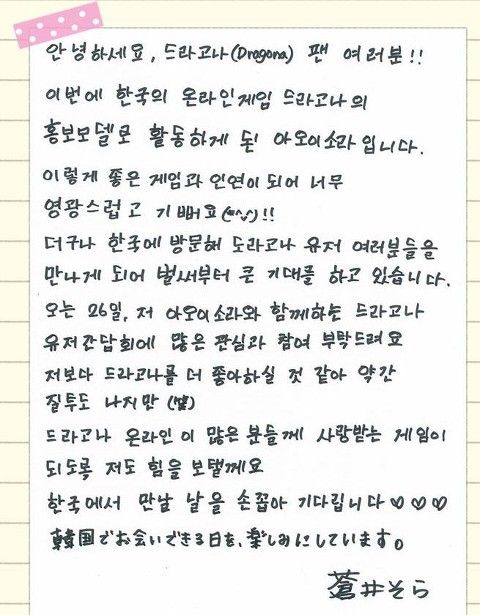 안녕하세요, 드라고나(Dragona) 팬 여러분!!
이번에 한국의 온라인게임 드라고나의
홍보모델로 활동하게 된 아오이소라입니다.
이렇게 좋은 게임과 인연이 되어 너무
영광스럽고 기뻐요(^^)!!
더구나 한국에 방문해 드라고나 유저 여러분들을
만나게 되어 벌써부터 큰 기대를 하고 있습니다.
오는 26일, 저 아오이소라와 함께하는 드라고나
유저간담회에 많은 관심과 참여 부탁드려요
저보다 드라고나를 더 좋아하실 것 같아 약간
질투도 나지만
드라고나 온라인이 많은 분들께 사랑받는 게임이
되도록 저도 힘을 보탤께요
한국에서 만날 날을 손꼽아 기다립니다♡♡♡
韓国でお会いできる日を、楽しみにしています。
蒼井そら